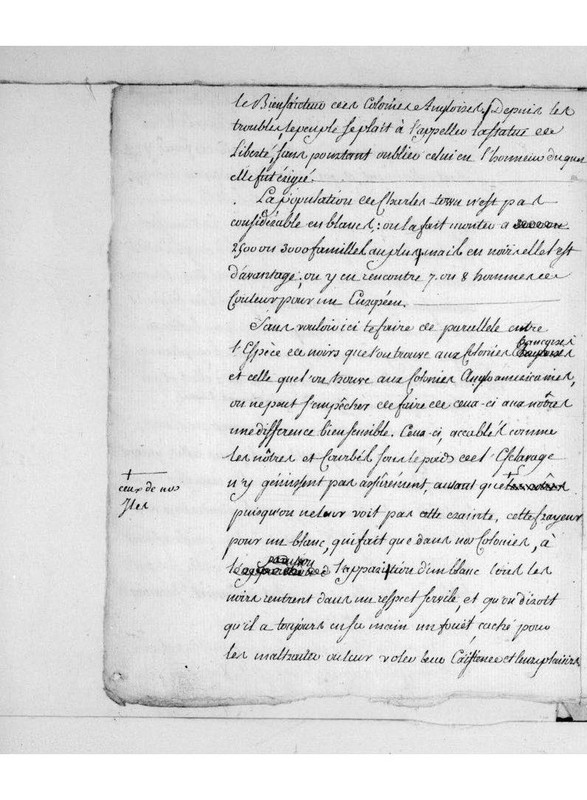 le Bienfaiteur des Colonies Angloises. Depuis les
troubles, le peuple se plait à l'appeller la statue de
Liberté, sans pourtant oublier celui en l'honneur du quel
elle fut érigé.
La population de Charles-town n'est pas
considérable en blancs; on la fait monter a
2500 ou 3000 familles au plus, mais en noirs elle est
d'avantage; on y en rencontre 7. ou 8 hommes de
Couleur pour un Européen.
Sans vouloir ici te faire de parcellele entre
françoises
l'Espèce de noirs que l'on trouve aux Colonies
et celle que l'on trouve aux Colonies Angloamericaines,
on ne peut s'empêcher de faire de ceux-ci aux nôtres
une difference bien sensible. Ceux-ci, accablés comme
les nôtres et Courbés sous le poids de l'Esclavage
n'y gémissent pas assurément, autant que les nôtres
+
ceux de nos
Isles
puisqu'on ne leur voit pas cette crainte, cette frayeur
pour un blanc, qui fait que dans nos Colonies, à
l'apparition d'un blanc tous les
noirs rentrent dans un respect servile, et qu'on diroit
qu'il a toujours en sa main un fouët, caché pour
les maltraiter ou leur voler leur Existence et leurs plaisirs